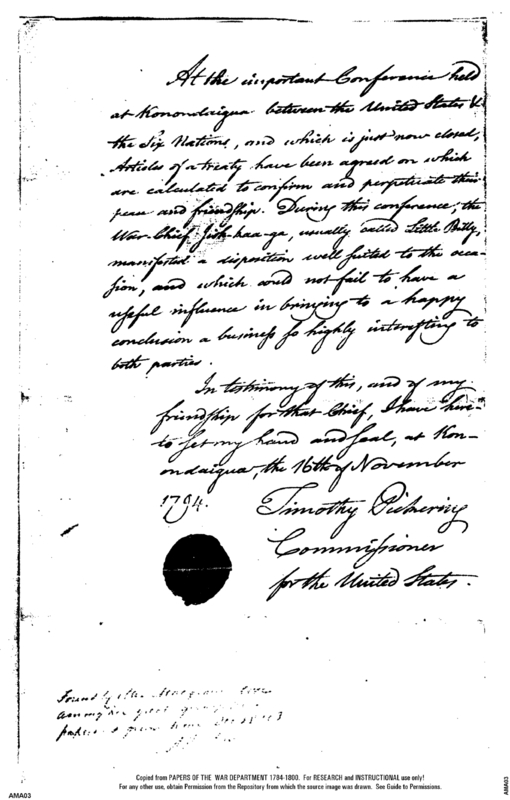 At the important Conference held
at Konondaigua between the United States &
the Six Nations, and which is just now closed,
Articles of a treaty have been agreed on which
are calculated to confirm and perpetuate their
peace and friendship. During this conference, the
War-Chief Jish-kaa-ga, usually called Little Billy,
manifested a disposition well suited to the occa-
sion, and which could not fail to have a
useful influence in bringing to a happy
conclusion a business so highly interesting to
both parties.
In testimony of this, and of my
friendship for that Chief, I have here-
to set my hand and seal, at Kon-
ondaigua, the 16th of November
1794.
Timothy Pickering
Commissioner
for the United States.
Found by
among her great
papers
Copied from PAPERS OF THE WAR DEPARTMENT 1784-1800. For RESEARCH and INSTRUCTIONAL use only!
For any other use, obtain Permission from the Repository from which the source image was drawn. See Guide to Permissions.
AMA03
AMA03